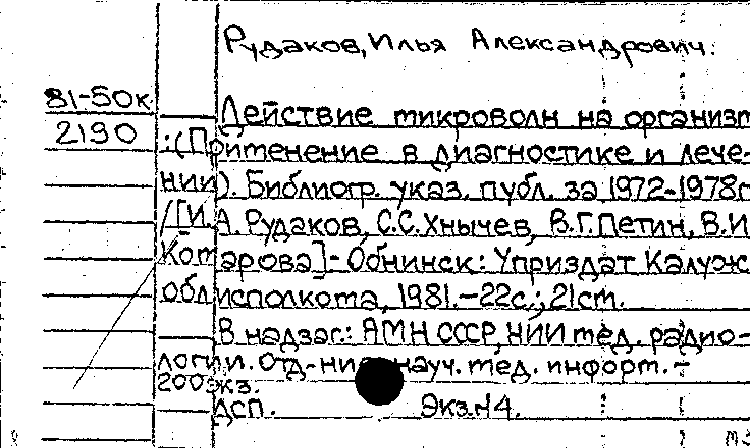 Рудаков, Илья Александрович.
81-50к
2190
Действие микроволн на организм
:(Применение в диагностике и лече-
нии). Библиогр. указ. публ. за 1972-1978г
/[И.А. Рудаков, С.С. Хнычев, В.Г. Петин, В.И
Комарова]- Обнинск: Уприздат Калуж
облисполкома, 1981.-22с.; 21см.
В надзаг.: АМН СССР, НИИ мед. радио-
логии. Отд-ние науч. мед. информ. -
200экз.
ДСП. Экз.N4.